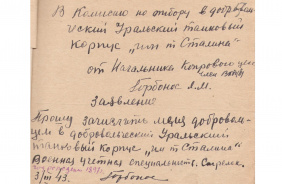 В Комисию по отбору в доброволь
ческий Уральский танковый
корпус „им т Сталина"
от Начальника Копрового цеха
член ВКП(б)
Горбонос Я.М.
Заявление
Прошу зачислить меня доброволь
цем в добровольческий Уральский
танковый корпус „им т Сталина"
Военная учетная специальность
3/III 43. Горбонос